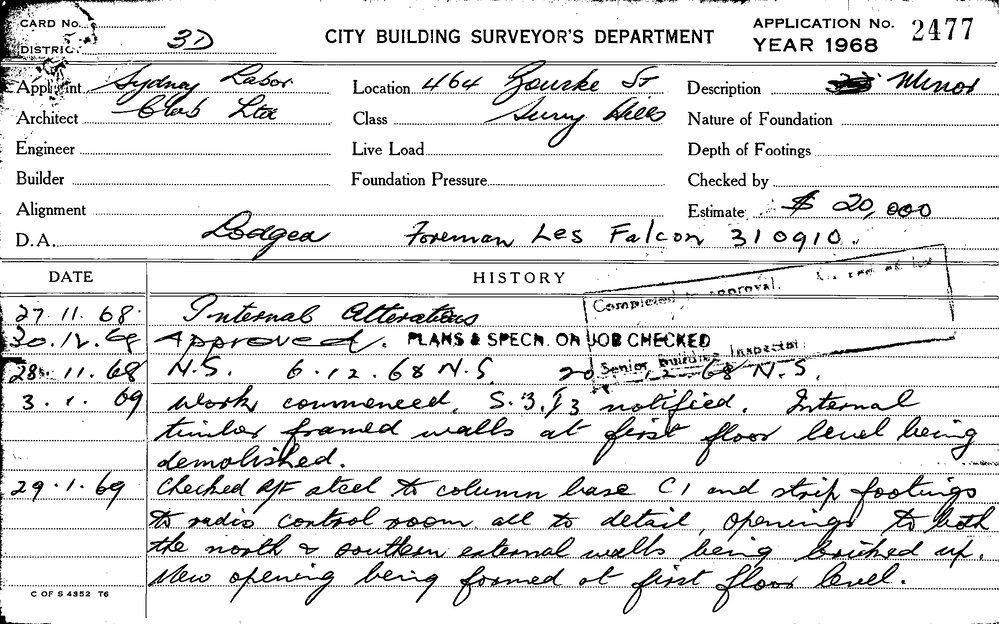 CARD No.
DISTRIC 3D
CITY BUILDING SURVEYOR'S DEPARTMENT
APPLICATION No. 2477
YEAR 1968
Applicant Sydney Labor
Location 464 Bourke St
Description Minor
Architect Club Ltd
Class Surry Hills
Nature of Foundation
Engineer
Live Load
Depth of Footings
Builder
Foundation Pressure
Checked by
Alignment
Estimate $ 20,000
D.A. Lodged Foreman Les Falcon 310910.
DATE HISTORY
27.11.68 Internal Alterations
Completed approval.
30.12.68 Approved. PLANS & SPECN. ON JOB CHECKED
Senior Building Inspector
28.11.68 N.S. 6.12.68 N.S. 20.12.68 N.S.
3.1.69 Work commenced, S.3.13 notified. Internal
timber framed walls at first floor level being
demolished.
29.1.69 Checked R/F steel to column base C1 and strip footings
to radio control room all to detail, openings to both
the north & southern external walls being bricked up.
New opening being formed at first floor level.
C OF S 4352 T6